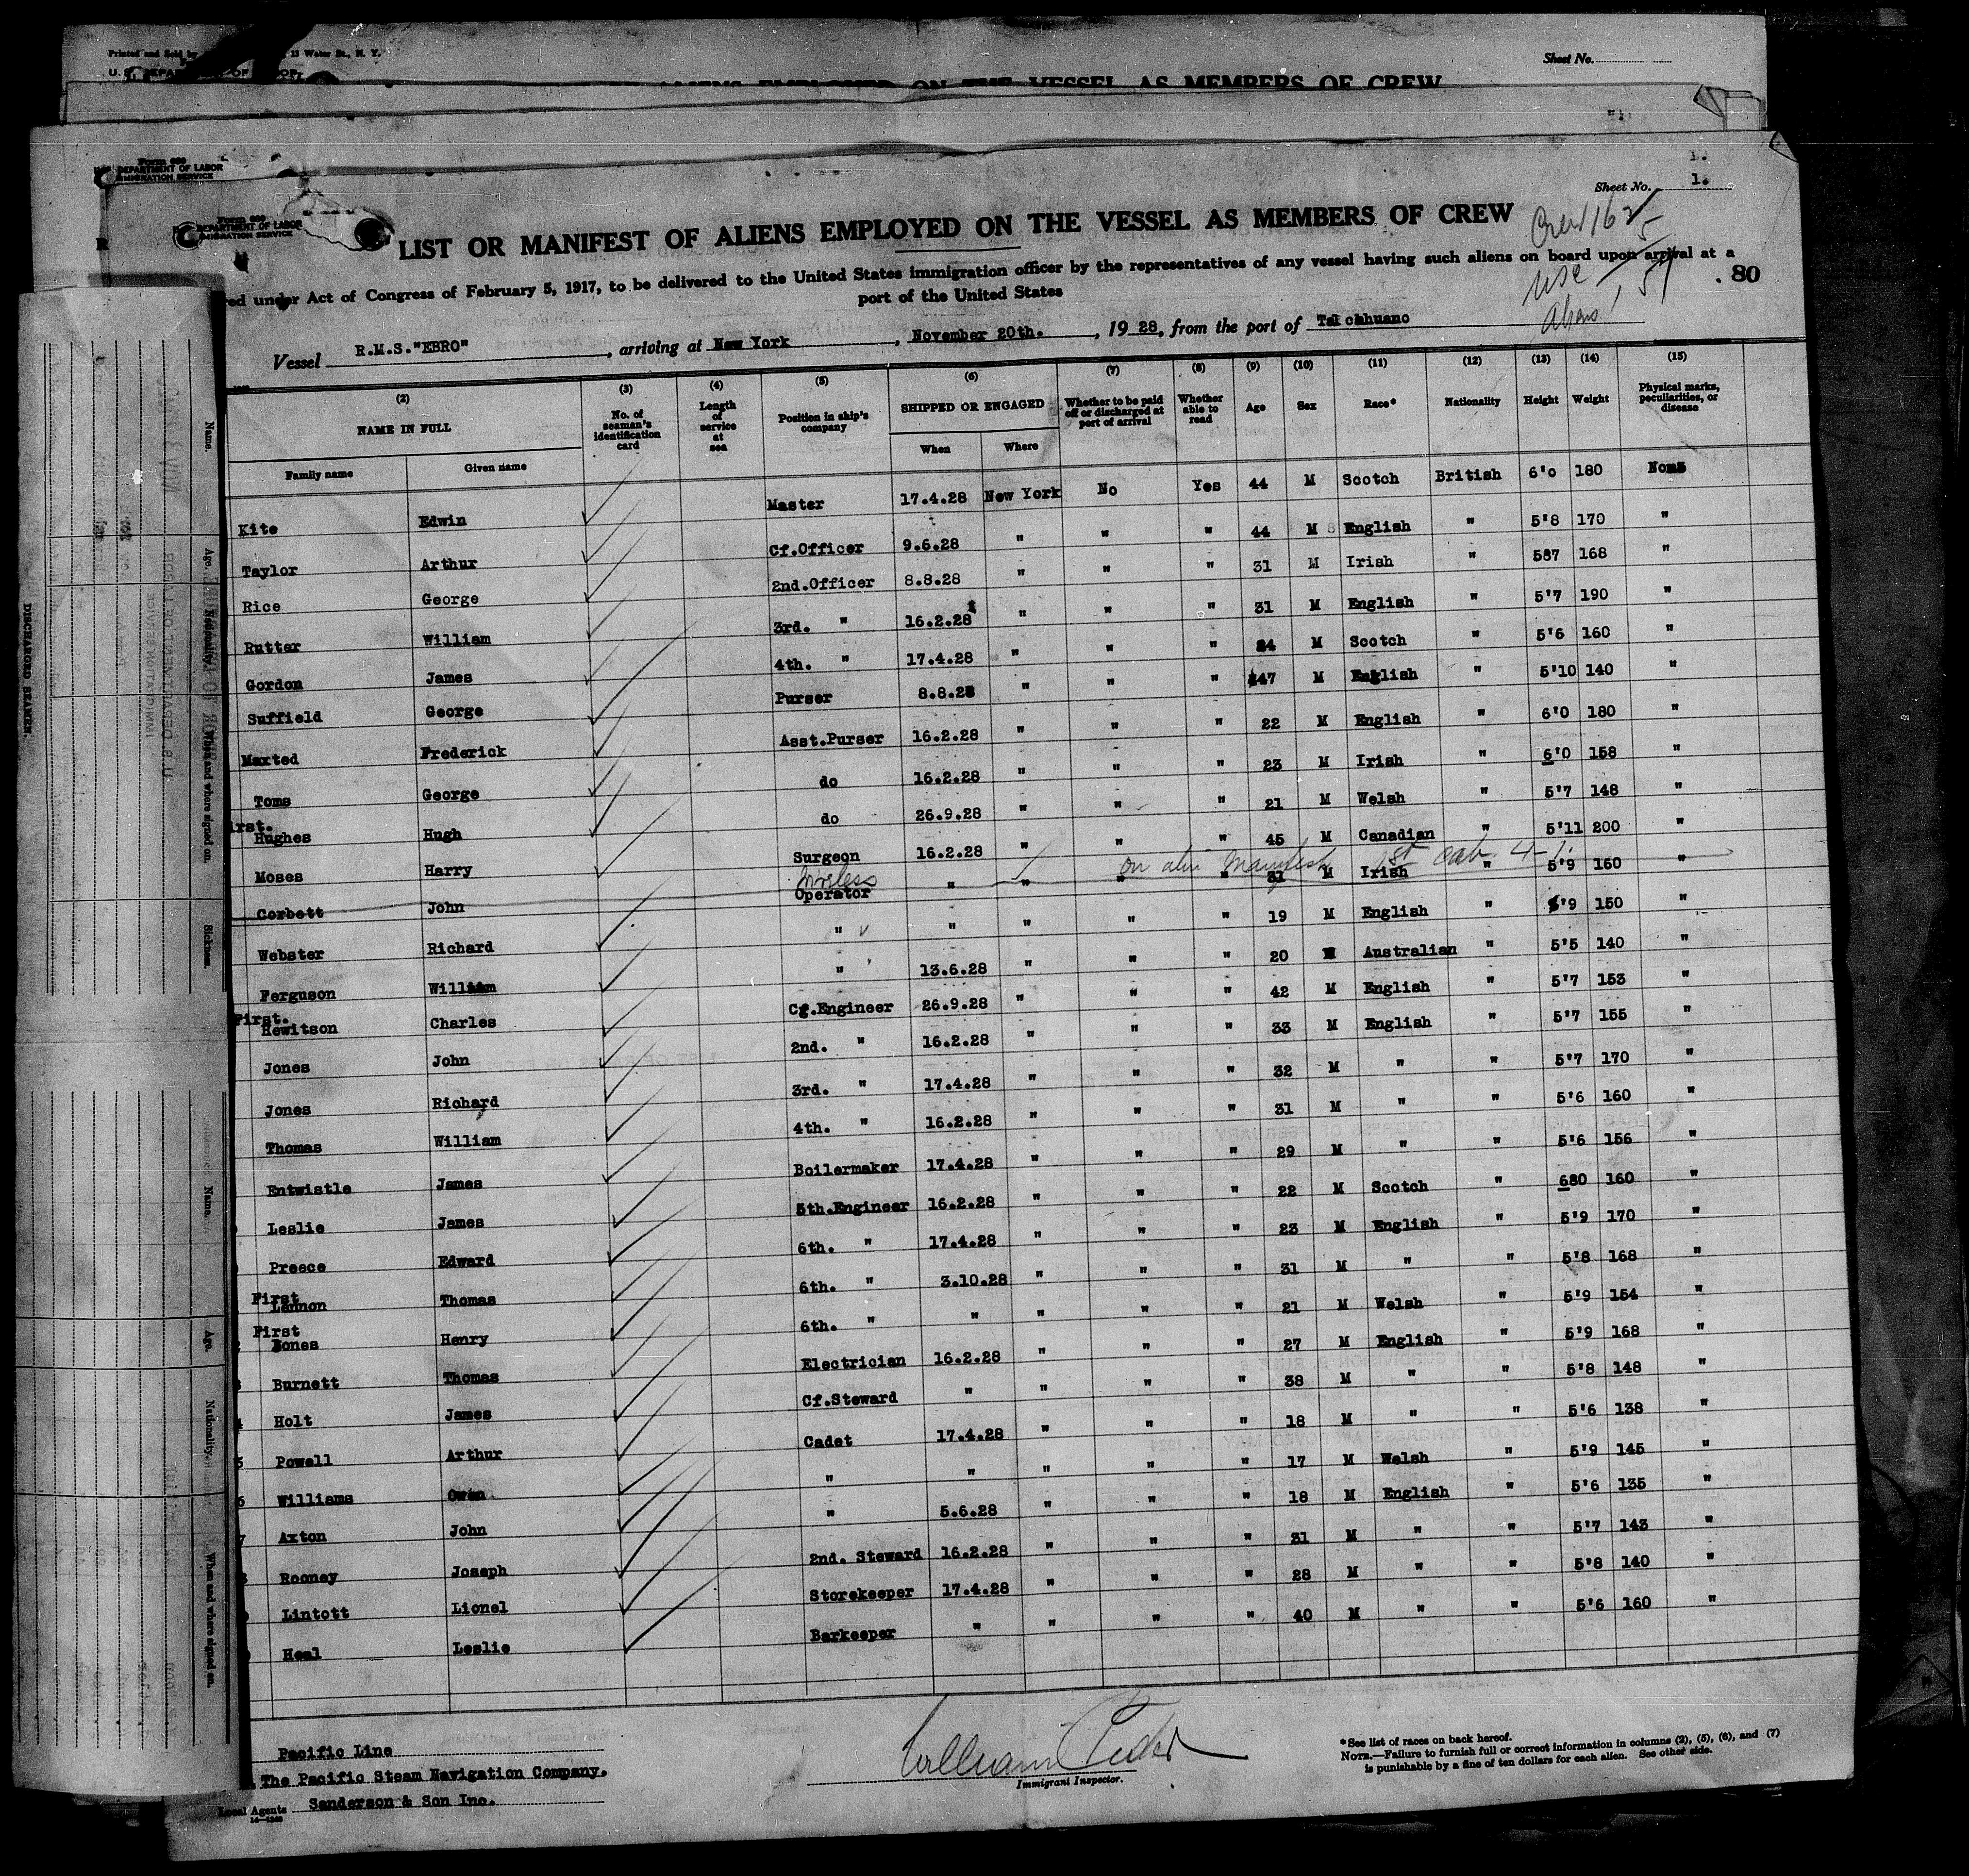 Printed and Sold by 13 Water St., N. Y.
Sheet No.
ALIENS EMPLOYED ON THE VESSEL AS MEMBERS OF CREW
Form 680
DEPARTMENT OF LABOR
IMMIGRATION SERVICE
1.
Sheet No. 1.
Form 680
DEPARTMENT OF LABOR
IMMIGRATION SERVICE
LIST OR MANIFEST OF ALIENS EMPLOYED ON THE VESSEL AS MEMBERS OF CREW
Crew 162
red under Act of Congress of February 5, 1917, to be delivered to the United States immigration officer by the representatives of any vessel having such aliens on board upon arrival at a
port of the United States
80
Vessel R.M.S."EBRO", arriving at New York, November 20th., 1928, from the port of Talcahuano
(2) (3) (4) (5) (6) (7) (8) (9) (10) (11) (12) (13) (14) (15)
NAME IN FULL No. of seaman's identification card Length of service at sea Position in ship's company SHIPPED OR ENGAGED Whether to be paid off or discharged at port of arrival Whether able to read Age Sex Race* Nationality Height Weight Physical marks, peculiarities, or disease
Family name Given name When Where
Kite Edwin Master 17.4.28 New York No Yes 44 M Scotch British 6'0 180 None
Taylor Arthur Cf.Officer 9.6.28 " " " 44 M English " 5'8 170 "
Rice George 2nd.Officer 8.8.28 " " " 31 M Irish " 587 168 "
Rutter William 3rd. " 16.2.28 " " " 31 M English " 5'7 190 "
Gordon James 4th. " 17.4.28 " " " 24 M Scotch " 5'6 160 "
Suffield George Purser 8.8.28 " " " 47 M English " 5'10 140 "
Maxted Frederick Asst.Purser 16.2.28 " " " 22 M English " 6'0 180 "
Toms George do 16.2.28 " " " 23 M Irish " 6'0 158 "
irst.
Hughes Hugh do 26.9.28 " " " 21 M Welsh " 5'7 148 "
Moses Harry Surgeon 16.2.28 " " " 45 M Canadian " 5'11 200 "
Wireless on alien Manifest 1st cab. 4-1.
Corbett John Operator " " " " 31 M Irish " 5'9 160 "
Webster Richard " " " " " 19 M English " 5'9 150 "
Ferguson William " 13.6.28 " " " 20 M Australian " 5'5 140 "
First.
Hewitson Charles Cf.Engineer 26.9.28 " " " 42 M English " 5'7 153 "
Jones John 2nd. " 16.2.28 " " " 33 M English " 5'7 155 "
Jones Richard 3rd. " 17.4.28 " " " 32 M " " 5'7 170 "
Thomas William 4th. " 16.2.28 " " " 31 M " " 5'6 160 "
Entwistle James Boilermaker 17.4.28 " " " 29 M " " 5'6 156 "
Leslie James 5th.Engineer 16.2.28 " " " 22 M Scotch " 680 160 "
Preece Edward 6th. " 17.4.28 " " " 23 M English " 5'9 170 "
First
Lennon Thomas 6th. " 3.10.28 " " " 31 M " " 5'8 168 "
First
Jones Henry 6th. " " " " " 21 M Welsh " 5'9 154 "
Burnett Thomas Electrician 16.2.28 " " " 27 M English " 5'9 168 "
Holt James Cf.Steward " " " " 38 M " " 5'8 148 "
Powell Arthur Cadet 17.4.28 " " " 18 M " " 5'6 138 "
Williams Owen " " " " " 17 M Welsh " 5'9 145 "
Axton John " 5.6.28 " " " 18 M English " 5'6 135 "
Rooney Joseph 2nd. Steward 16.2.28 " " " 31 M " " 5'7 143 "
Lintott Lionel Storekeeper 17.4.28 " " " 28 M " " 5'8 140 "
Heal Leslie Barkeeper " " " " 40 M " " 5'6 160 "
Pacific Line
The Pacific Steam Navigation Company.
Local Agents Sanderson & Son Inc.
Immigrant Inspector.
*See list of races on back hereof.
NOTE.—Failure to furnish full or correct information in columns (2), (5), (6), and (7)
is punishable by a fine of ten dollars for each alien. See other side.
Name.
Age.
Nationality.
When and where signed on.
Sickness.
DISCHARGED SEAMEN.
Name.
Age.
Nationality.
When and where signed on.